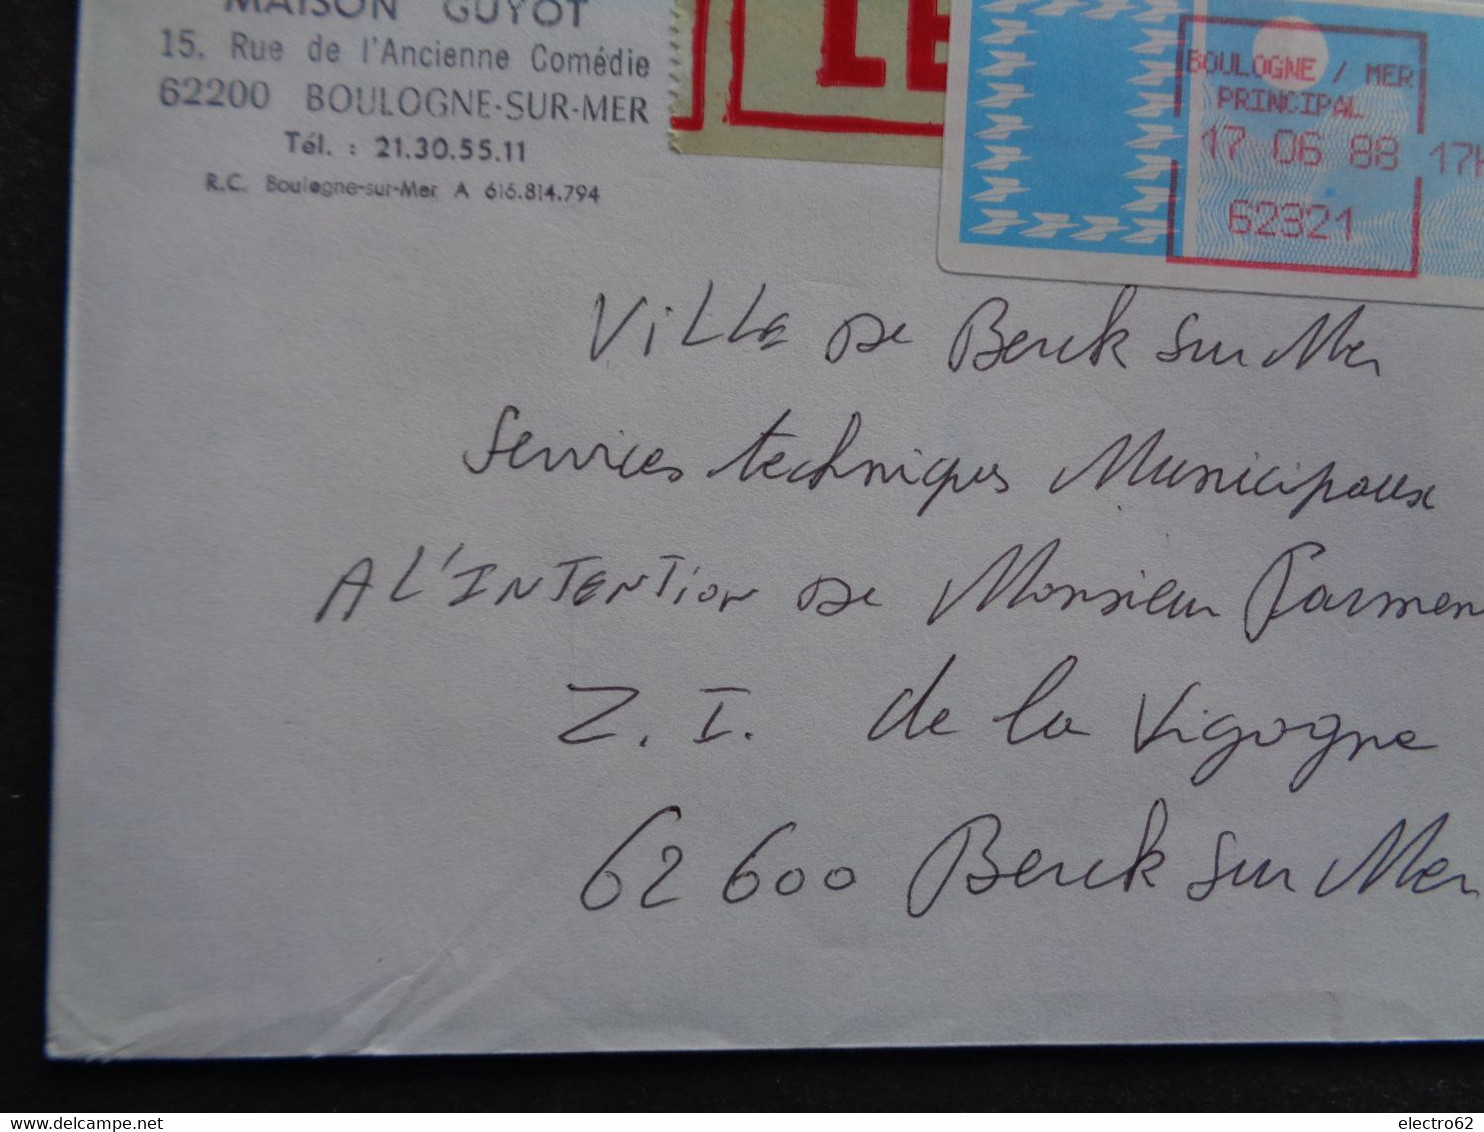 MAISON GUYOT
15, Rue de l'Ancienne Comédie
62200 BOULOGNE-SUR-MER
Tél. : 21.30.55.11
R.C. Boulogne-sur-Mer A 616.814.794
LE
BOULOGNE / MER
PRINCIPAL
17 06 88 17H
62321
Ville de Berck sur Mer
Services techniques Municipaux
A L'INTENTion de Monsieur Parmen
Z.I. de la Vigogne
62600 Berck sur Mer
electro62